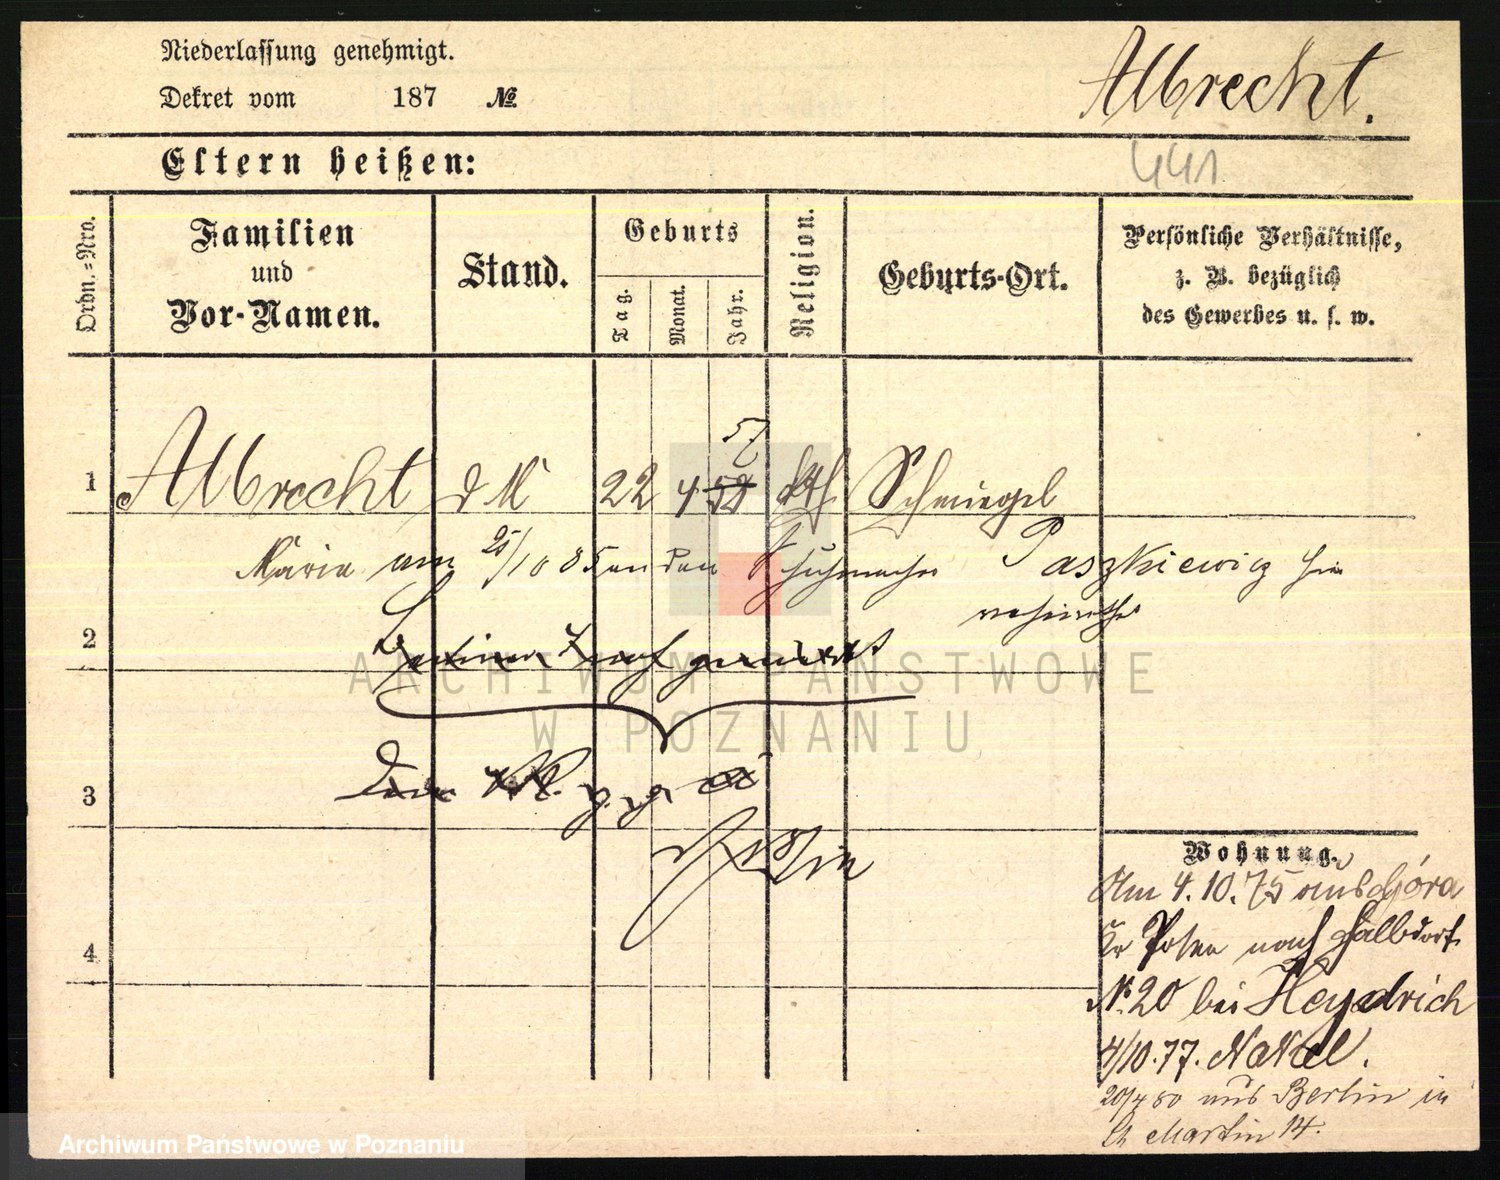 Niederlassung genehmigt.
Albrecht.
Dekret vom 187 №
441
Eltern heißen:
Ordn.=Nro.
Familien
und
Vor-Namen.
Stand.
Geburts
Tag.
Monat.
Jahr.
Religion.
Geburts-Ort.
Persönliche Verhältnisse,
z. B. bezüglich
des Gewerbes u. s. w.
57
1 Albrecht d M 22 4 58 kth Schmiegel
Maria am 25/10 85 an den Schuhmacher Paszkiewicz hier
verheirathet
2
3
4
Wohnung.
Am 4.10.75 aus Góra
Kr Posen nach Halbdorf
№ 20 bei Heydrich
4/10.77. Nakel.
20/4 80 aus Berlin in
St Martin 14.
ARCHIWUM PAŃSTWOWE
W POZNANIU
Archiwum Państwowe w Poznaniu